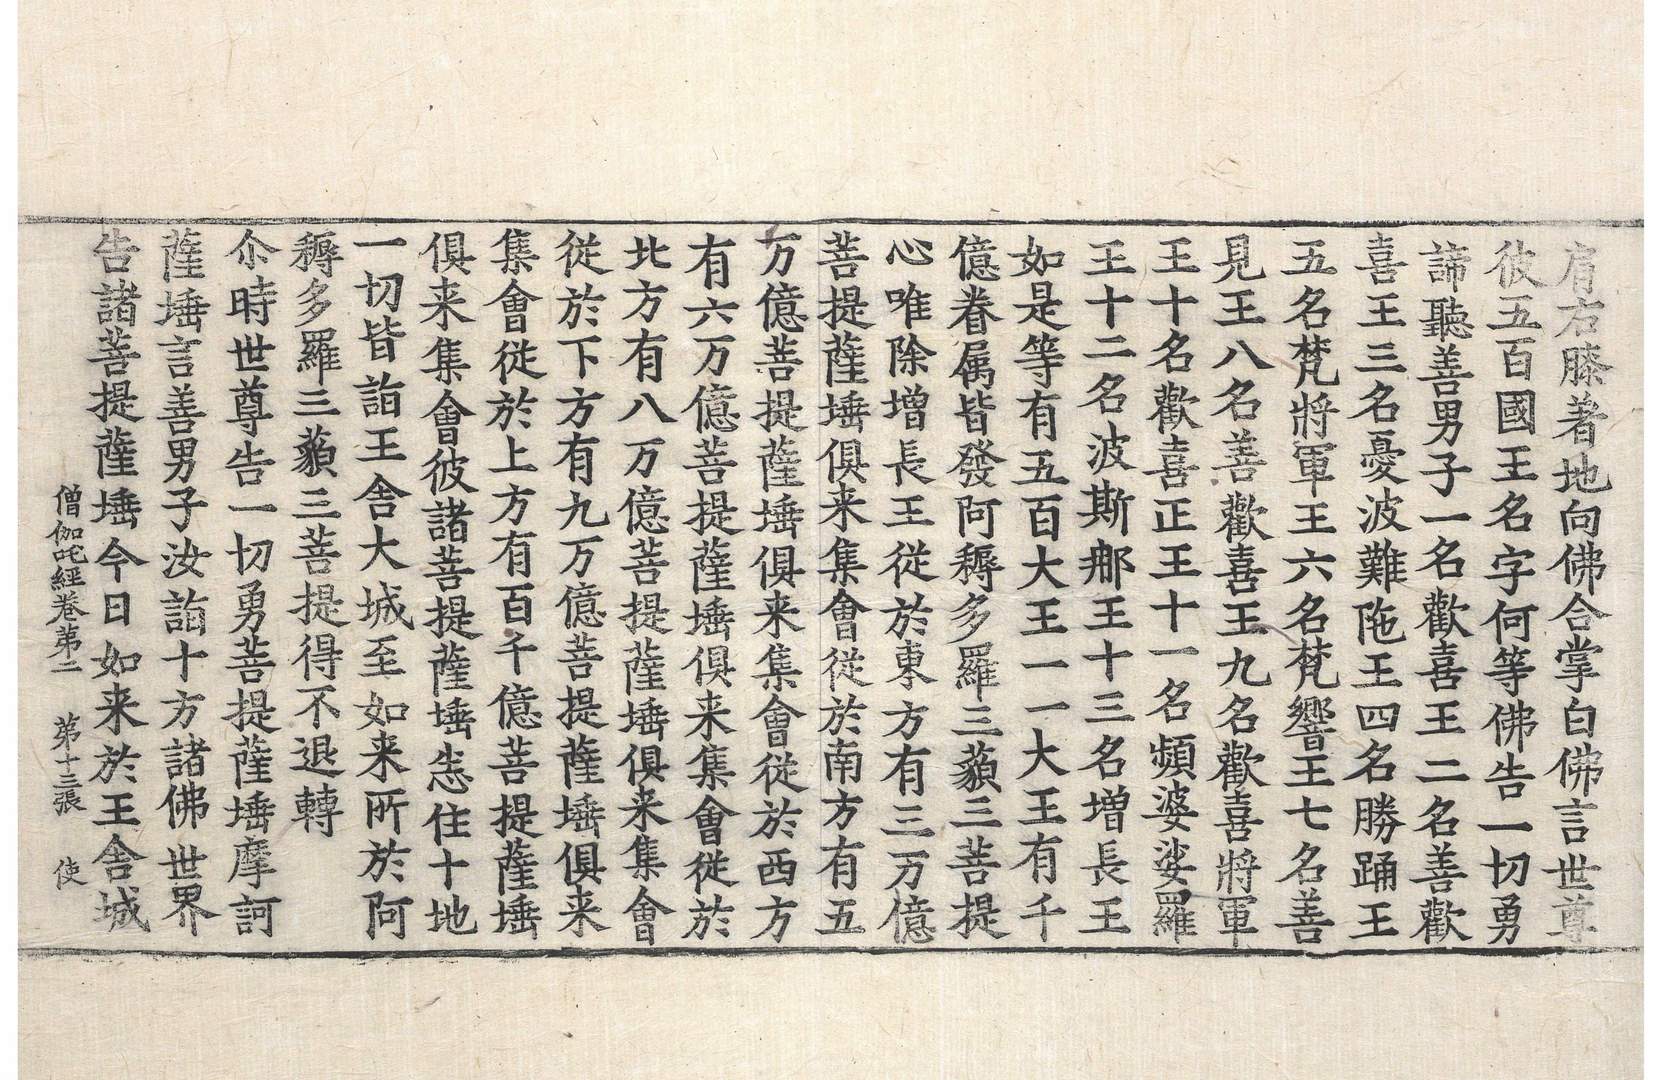 肩右膝著地向佛合掌白佛言世尊
彼五百國王名字何等佛告一切勇
諦聽善男子一名歡喜王二名善歡
喜王三名憂波難陁王四名勝踊王
五名梵將軍王六名梵響王七名善
見王八名善歡喜王九名歡喜將軍
王十名歡喜正王十一名頻婆娑羅
王十二名波斯那王十三名增長王
如是等有五百大王一一大王有千
億眷属皆發阿耨多羅三藐三菩提
心唯除增長王從於東方有三万億
菩提薩埵俱来集會從於南方有五
万億菩提薩埵俱来集會從於西方
有六万億菩提薩埵俱来集會從於
北方有八万億菩提薩埵俱来集會
從於下方有九万億菩提薩埵俱来
集會從於上方有百千億菩提薩埵
俱来集會彼諸菩提薩埵悉住十地
一切皆詣王舍大城至如来所於阿
耨多羅三藐三菩提得不退轉
尒時世尊告一切勇菩提薩埵摩訶
薩埵言善男子汝詣十方諸佛世界
告諸菩提薩埵今日如来於王舍城
僧伽吒經卷第二 第十三張 使